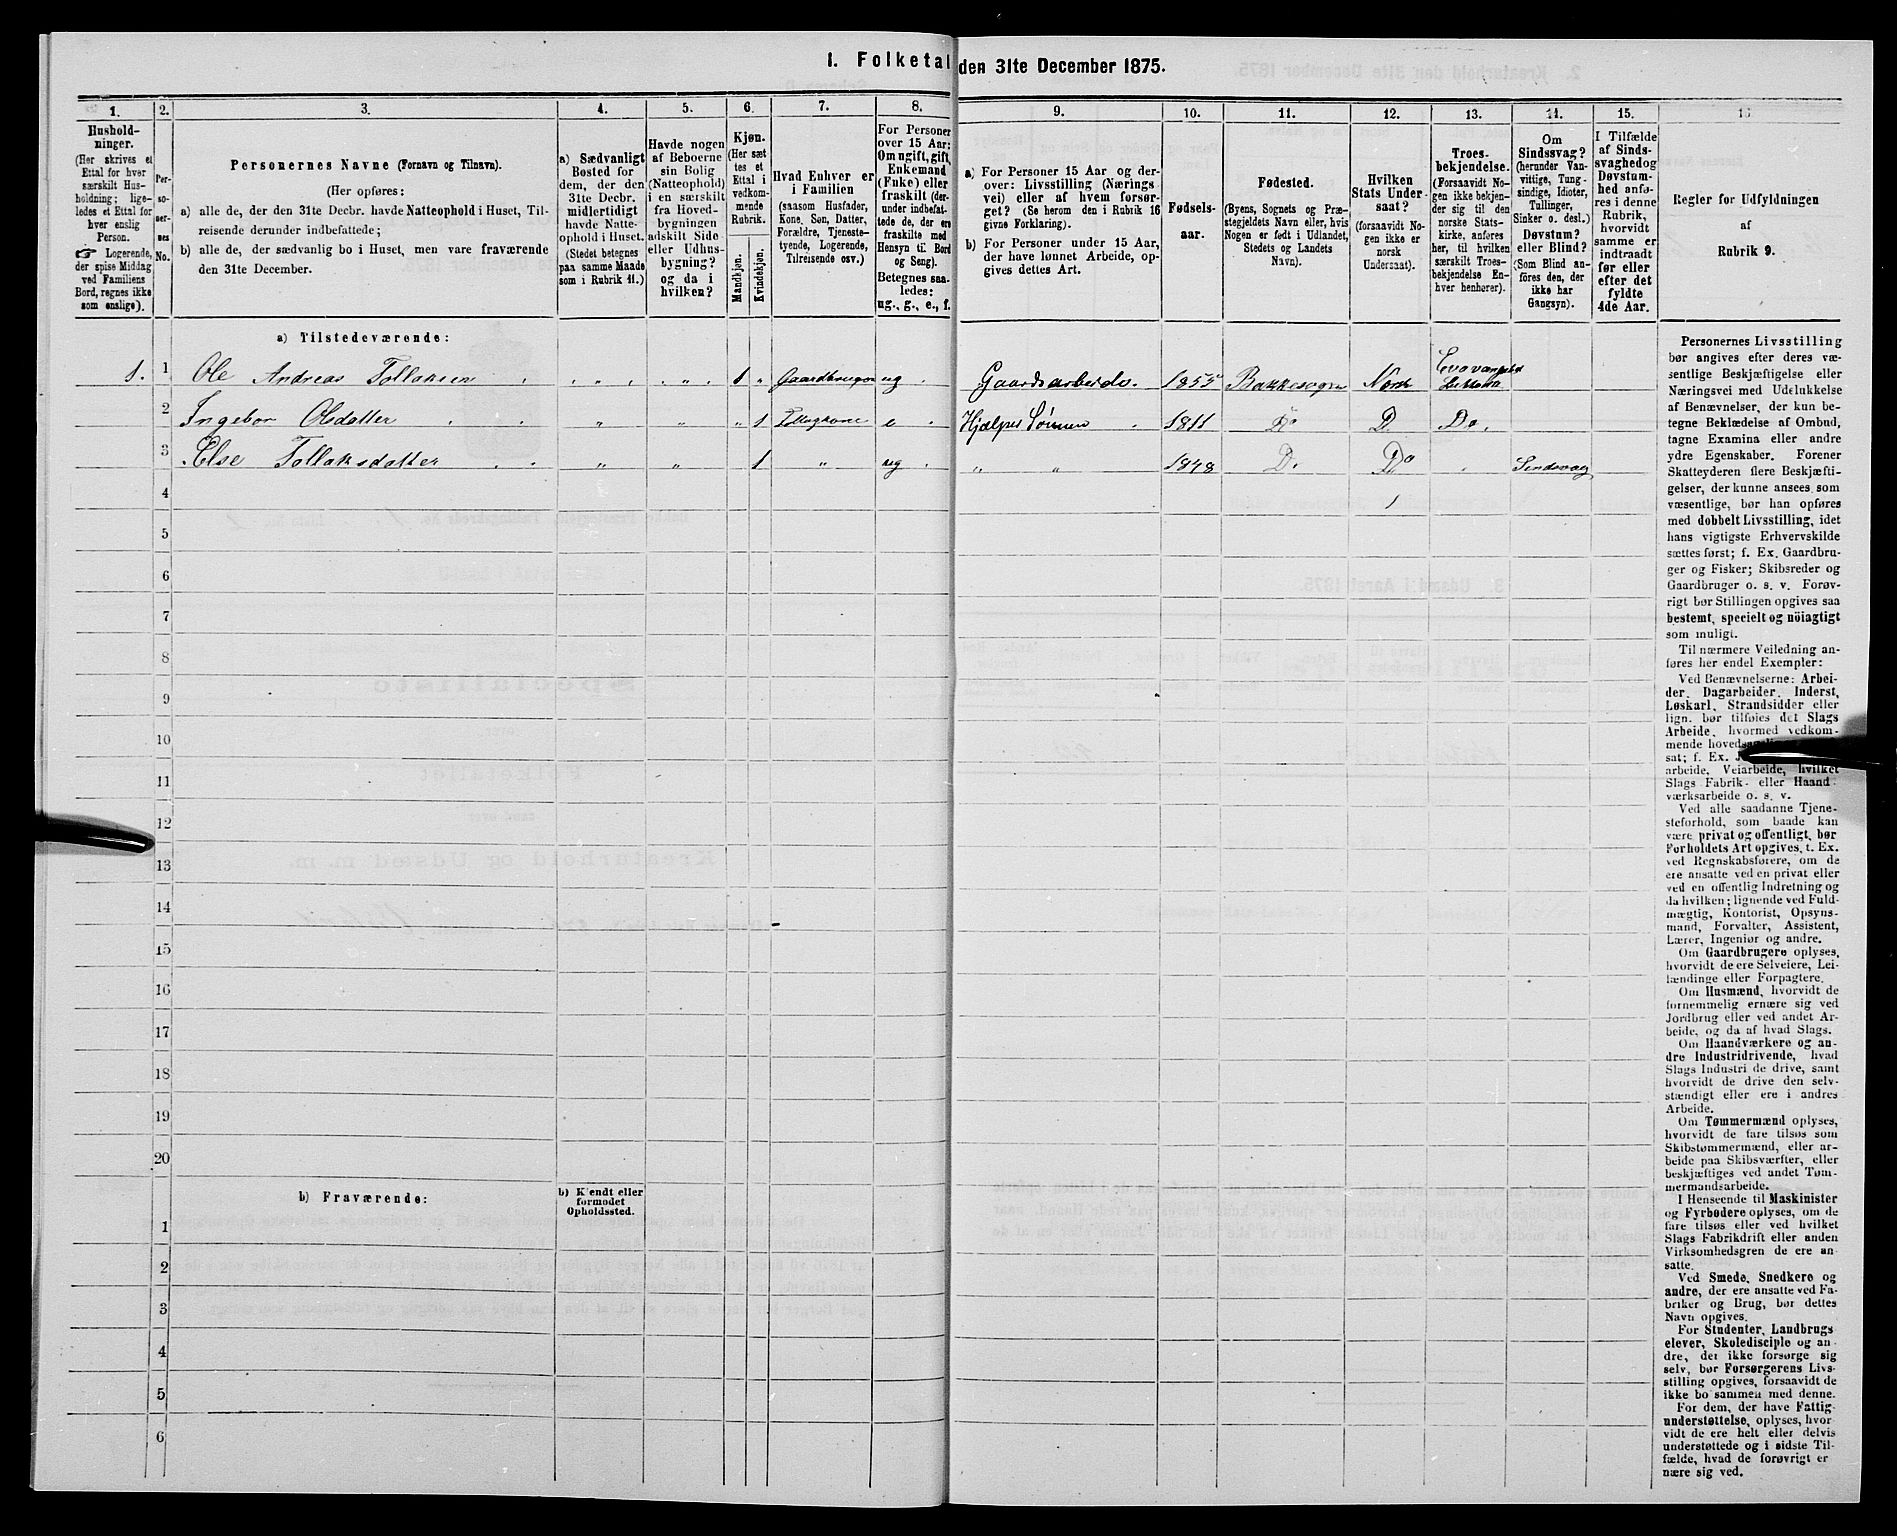 I. Folketal den 31te December 1875.
1. 2. 3. 4. 5. 6. 7. 8. 9. 10. 11. 12. 13. 14. 15. 16
Hushold-
ninger.
(Her skrives et
Ettal for hver
særskilt Hus-
holdning; lige-
ledes et Ettal for
hver enslig
Person.
☞ Logerende,
der spise Middag
ved Familiens
Bord, regnes ikke
som enslige).
Per-
so-
ner-
nes
No.
Personernes Navne (Fornavn og Tilnavn).
(Her opføres:
a) alle de, der den 31te Decbr. havde Natteophold i Huset, Til-
reisende derunder indbefattede;
b) alle de, der sædvanlig bo i Huset, men vare fraværende
den 31te December.
a) Sædvanligt
Bosted for
dem, der den
31te Decbr.
midlertidigt
havde Natte-
ophold i Huset.
(Stedet betegnes
paa samme Maade
som i Rubrik 11.)
Havde nogen
af Beboerne
sin Bolig
(Natteophold)
i en særskilt
fra Hoved-
bygningen
adskilt Side
eller Udhus-
bygning?
og da i
hvilken?
Kjøn.
(Her sæt
tes et
Ettal i
vedkom-
mende
Rubrik.
Mandkjøn.
Kvindekjøn.
Hvad Enhver er
i Familien
(saasom Husfader,
Kone, Søn, Datter,
Forældre, Tjeneste-
tyende, Logerende,
Tilreisende osv.)
For Personer
over 15 Aar:
Om ugift, gift,
Enkemand
(Enke) eller
fraskilt (der-
under indbefat-
tede de, der ere
fraskilte med
Hensyn til Bord
og Seng).
Betegnes saa-
ledes:
ug., g., e., f.
a) For Personer 15 Aar og der-
over: Livsstilling (Nærings
vei) eller af hvem forsør-
get? (Se herom den i Rubrik 16
givne Forklaring).
b) For Personer under 15 Aar,
der have lønnet Arbeide, op-
gives dettes Art.
Fødsels-
aar.
Fødested.
(Byens, Sognets og Præ-
stegjeldets Navn eller, hvis
Nogen er født i Udlandet,
Stedets og Landets
Navn).
Hvilken
Stats Under-
saat?
(forsaavidt No-
gen ikke er
norsk
Undersaat).
Troes-
bekjendelse.
(Forsaavidt No-
gen ikke bekjen-
der sig til den
norske Stats-
kirke, anføres
her, til hvilken
særskilt Troes-
bekjendelse En-
hver henhører).
Om
Sindssvag?
(herunder Van-
vittige, Tung-
sindige, Idioter,
Tullinger,
Sinker o. desl.)
Døvstum?
eller Blind?
(Som Blind an-
føres den, der
ikke har
Gangsyn).
I Tilfælde
af Sinds-
svaghed og
Døvstum-
hed anfø-
res i denne
Rubrik,
hvorvidt
samme er
indtraadt
før eller
efter det
fyldte
4de Aar.
Regler for Udfyldningen
af
Rubrik 9.
a) Tilstedeværende:
1. 1 Ole Andreas Tollaksen . „ „ . „ . 1 „ Gaardbruger ug . Gaardsarbeide. 1855 Bakkesogn Norsk Evavangelsk Luttersk
2 Ingebor Olsdatter . . „ „ „ 1 e . Hjælper Sønnen . 1811 Do D. Do.
3 Else Tollaksdatter . . „ „ 1 „ ug . „ „ 1848 D. Do . Sindsvag
4
5
6
7
8
9
10
11
12
13
14
15
16
17
18
19
20
b) Fraværende:
b) Kjendt eller
formodet
Opholdssted.
1
2
3
4
5
6
Personernes Livsstilling
bør angives efter deres væ-
sentlige Beskjæftigelse eller
Næringsvei med Udelukkelse
af Benævnelser, der kun be-
tegne Beklædelse af Ombud,
tagne Examina eller andre
ydre Egenskaber. Forener
Skatteyderen flere Beskjæfti-
gelser, der kunne ansees som
væsentlige, bør han opføres
med dobbelt Livsstilling, idet
hans vigtigste Erhvervskilde
sættes først; f. Ex. Gaardbru-
ger og Fisker; Skibsreder og
Gaardbruger o. s. v. Forøv-
rigt bør Stillingen opgives saa
bestemt, specielt og nöiagtigt
som muligt.
Til nærmere Veiledning an-
føres her endel Exempler:
Ved Benævnelserne: Arbei-
der, Dagarbeider, Inderst,
Løskarl, Strandsidder eller
lign. bør tilføies det Slags
Arbeide, hvormed vedkom-
mende
sat; f. Ex.
arbeide, Veiarbeide, hvilket
Slags Fabrik- eller Haand-
værksarbeide o. s. v.
Ved alle saadanne Tjene-
steforhold, som baade kan
være privat og offentligt, bør
Forholdets Art opgives, f. Ex.
ved Regnskabsførere, om de
ere ansatte ved en privat eller
ved en offentlig Indretning og
da hvilken; lignende ved Fuld-
mægtig, Kontorist, Opsyns-
mand, Forvalter, Assistent,
Lærer, Ingeniør og andre.
Om Gaardbrugere oplyses,
hvorvidt de ere Selveiere, Lei-
lændinge eller Forpagtere.
Om Husmænd, hvorvidt de
fornemmelig ernære sig ved
Jordbrug eller ved andet Ar-
beide, og da af hvad Slags.
Om Haandværkere og an-
dre Industridrivende, hvad
Slags Industri de drive, samt
hvorvidt de drive den selv-
stændigt eller ere i andres
Arbeide.
Om Tømmermænd oplyses,
hvorvidt de fare tilsøs som
Skibstømmermænd, eller ar-
beide paa Skibsværfter, eller
beskjæftiges ved andet Tøm-
mermandsarbeide.
I Henseende til Maskinister
og Fyrbødere oplyses, om de
fare tilsøs eller ved hvilket
Slags Fabrikdrift eller anden
Virksomhedsgren de ere an-
satte.
Ved Smede, Snedkere og
andre, der ere ansatte ved Fa-
briker og Brug, bør dettes
Navn opgives.
For Studenter, Landbrugs-
elever, Skoledisciple og an-
dre, der ikke forsørge sig
selv, bør Forsørgerens Livs-
stilling opgives, forsaavidt de
ikke bo sammen med denne.
For dem, der have Fattig-
understøttelse, oplyses, hvor-
vidt de ere helt eller delvis
understøttede og i sidste Til-
fælde, hvad de forøvrigt er-
nære sig ved.